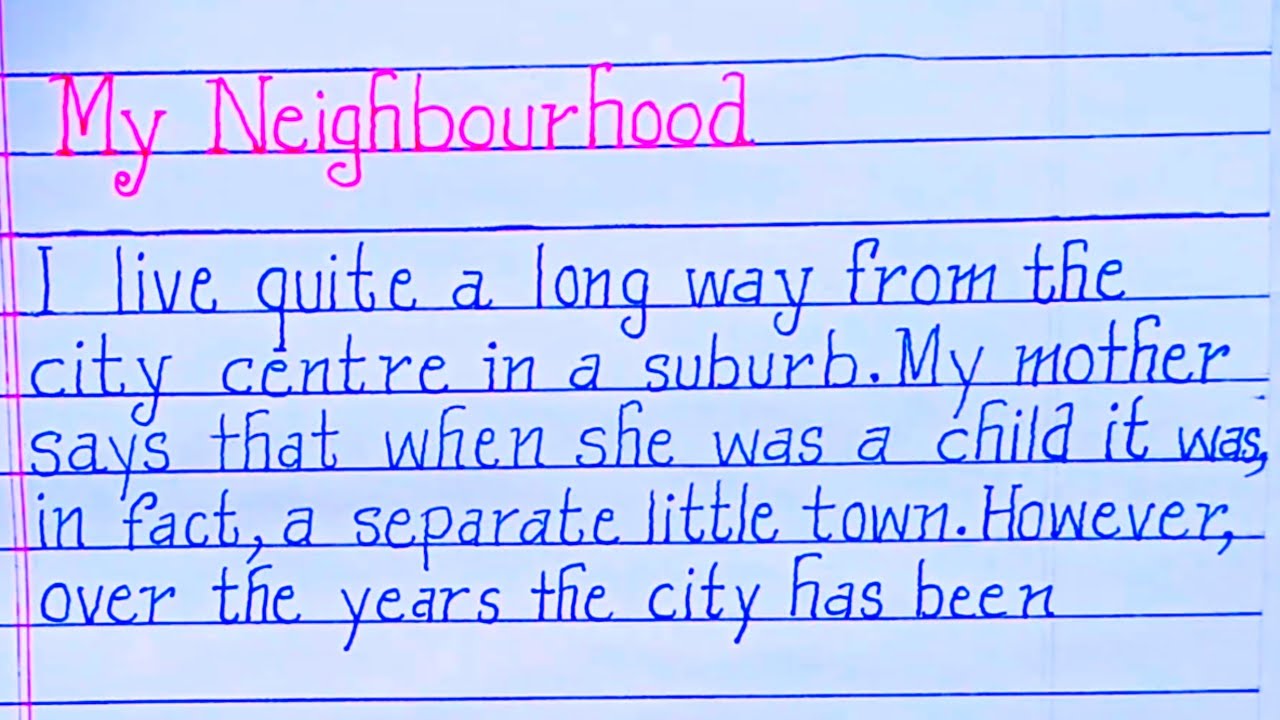 My Neighbourhood
I live quite a long way from the
city centre in a suburb. My mother
says that when she was a child it was,
in fact, a separate little town. However,
over the years the city has been